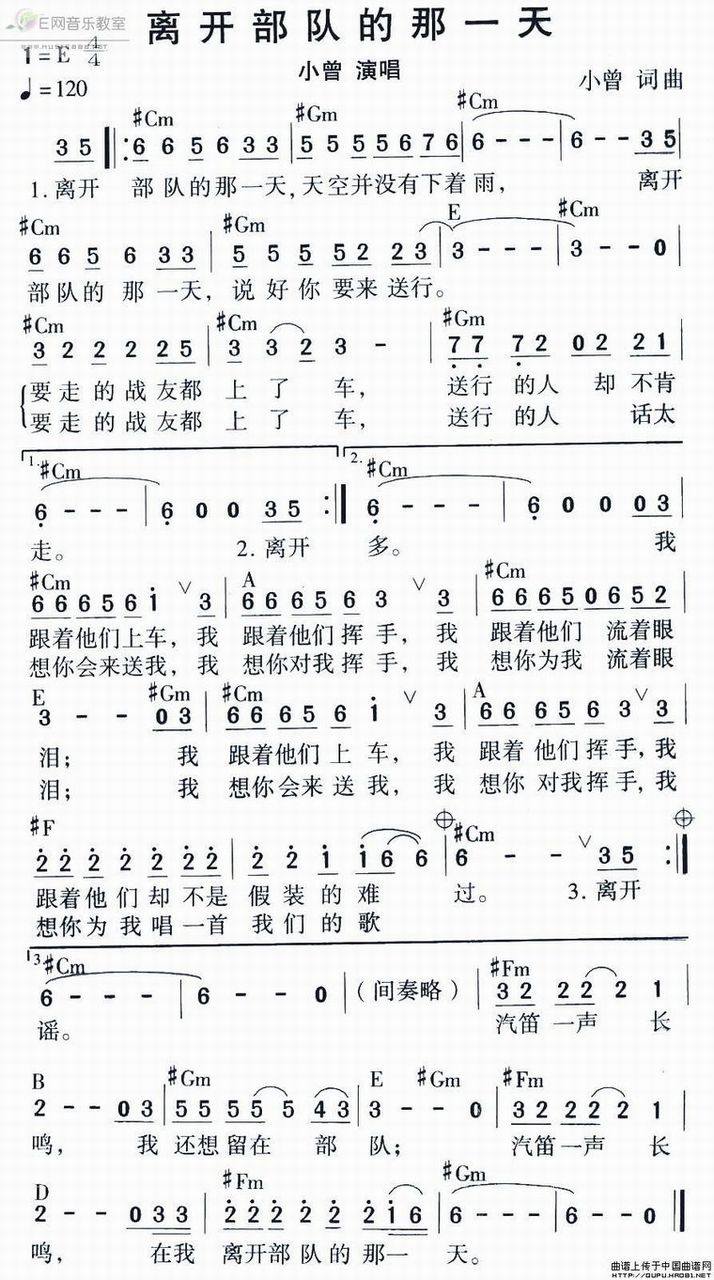 E网音乐教室
离开部队的那一天
1=E 4/4
小曾 演唱
小曾 词曲
♩=120
#Cm #Gm #Cm
3 5 ‖: 6 6 5 6 3 3 | 5 5 5 5 6 7 6 | 6 - - - | 6 - - 3 5 |
1.离开 部队的那一天,天空并没有下着雨, 离开
#Cm #Gm E #Cm
6 6 5 6 3 3 | 5 5 5 5 2 2 3 | 3 - - - | 3 - - 0 |
部队的那一天, 说好你要来送行。
#Cm #Cm #Gm
3 2 2 2 2 5 | 3 3 2 3 - | 7 7 7 2 0 2 2 1 |
要走的战友都上了车, 送行的人 却不肯
要走的战友都上了车, 送行的人 话太
1. #Cm 2. #Cm
6 - - - | 6 0 0 3 5 :‖ 6 - - - | 6 0 0 0 3 |
走。 2.离开 多。 我
#Cm A #Cm
6 6 6 6 5 6 i ∨ 3 | 6 6 6 6 5 6 3 ∨ 3 | 6 6 6 6 5 0 6 5 2 |
跟着他们上车,我 跟着他们挥手,我 跟着他们 流着眼
想你会来送我,我 想你对我挥手,我 想你为我 流着眼
E #Gm #Cm A
3 - - 0 3 | 6 6 6 6 5 6 i ∨ 3 | 6 6 6 6 5 6 3 ∨ 3 |
泪; 我 跟着他们上车,我 跟着他们挥手,我
泪; 我 想你会来送我,我 想你 对我挥手,我
#F #Cm
2 2 2 2 2 2 2 | 2 2 1 1 6 6 | 6 - - ∨ 3 5 :‖
跟着他们却不是 假装的难 过。 3.离开
想你为我唱一首 我们的歌
3 #Cm #Fm
6 - - - | 6 - - 0 | (间奏略) | 3 2 2 2 2 1 |
谣。 汽笛一声 长
B #Gm E #Gm #Fm
2 - - 0 3 | 5 5 5 5 5 4 3 | 3 - - 0 | 3 2 2 2 2 1 |
鸣, 我 还想留在 部队; 汽笛一声 长
D #Fm #Gm
2 - - 0 3 3 | 2 2 2 2 2 2 1 6 | 6 - - - | 6 - - 0 ‖
鸣, 在我 离开部队的那一 天。
曲谱上传于中国曲谱网
HTTP://QUPU.HROB1.NET